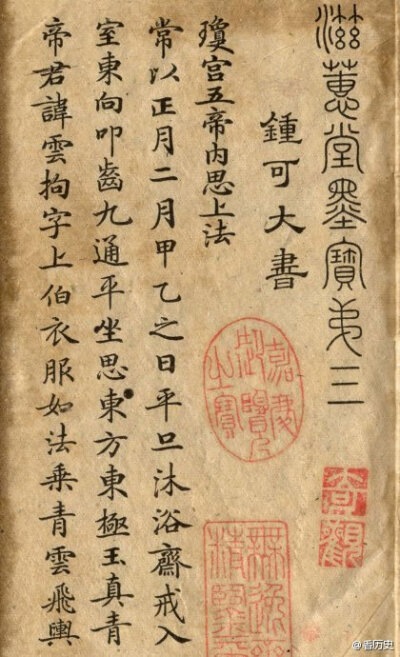 滋蕙堂墨寶第三
鍾可大書
瓊宮五帝內思上法
常以正月二月甲乙之日平旦沐浴齋戒入
室東向叩齒九通平坐思東方東極玉真青
帝君諱雲拘字上伯衣服如法乘青雲飛輿
嘉慶御覽之寶
@看历史